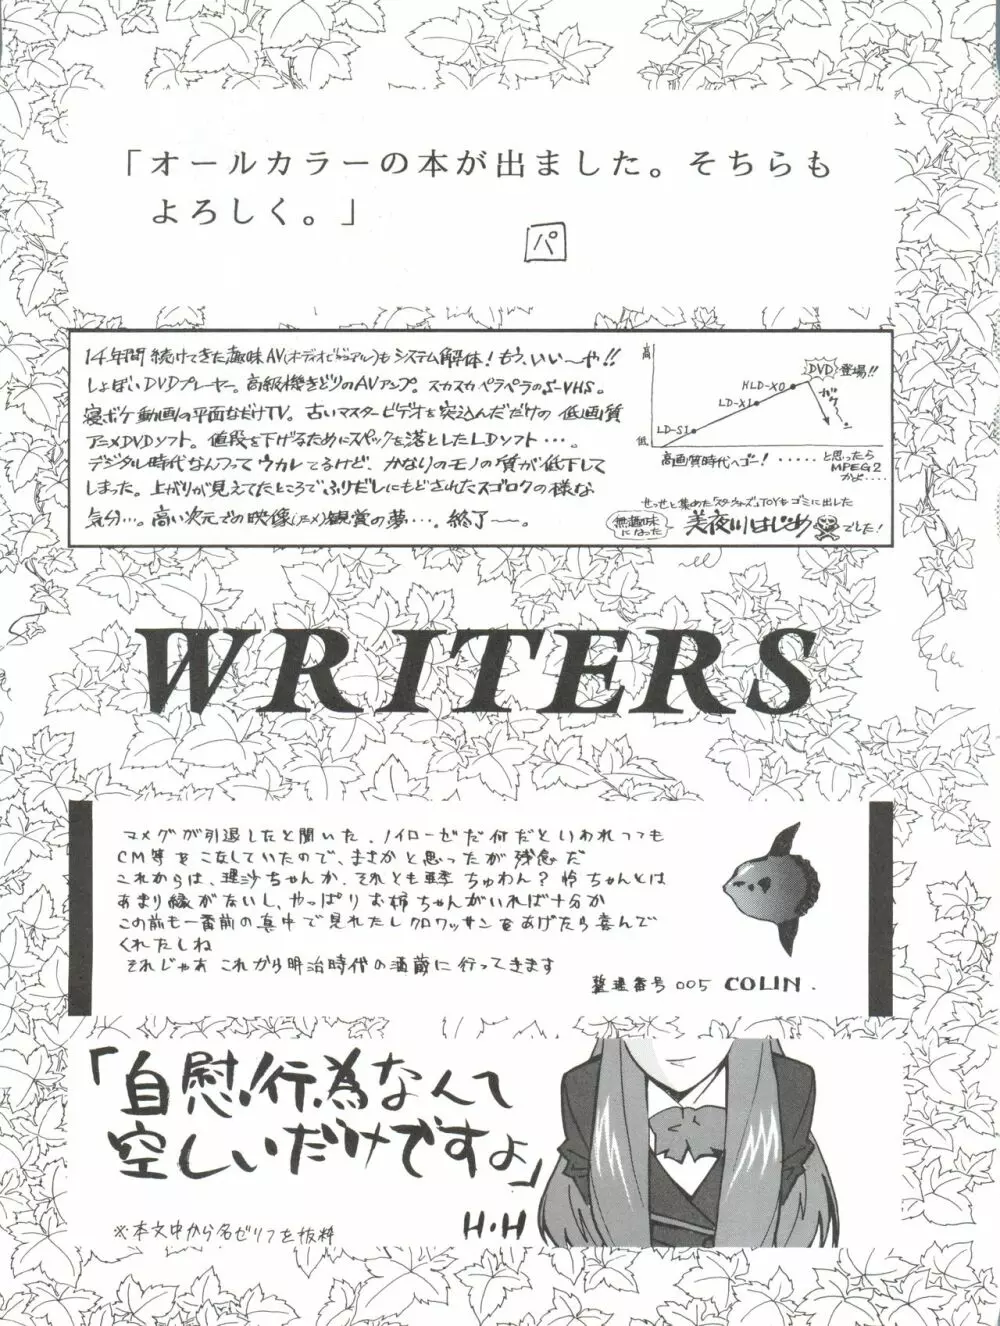 「オールカラーの本が出ました。そちらも
よろしく。」
パ
14年間続けてきた趣味AV(オーディオビジュアル)もシステム解体！もう、いい〜や!!
しょぼいDVDプレーヤー。高級機きどりのAVアンプ。スカスカペラペラのS-VHS。
寝ボケ動画の平面なだけTV。古いマスタービデオを突込んだだけの低画質
アニメDVDソフト。値段を下げるためにスペックを落としたLDソフト・・・。
デジタル時代なんつってウカレてるけど、かなりのモノの質が低下して
しまった。上がりが見えてたところでふりだしにもどされたスゴロクの様な
気分…。高い次元での映像(アニメ)観賞の夢・・・。終了〜。
高
低
LD-S1
LD-X1
HLD-X0
DVD登場!!
ガ〜
高画質時代へゴー！
・・・・・と思ったら
MPEG2
かど・・・・
せっせと集めた「スターウォーズ」TOYをゴミに出した
無趣味になった
美夜川はじめ でした！
WRITERS
マメグが引退したと聞いた、ノイローゼだ何だといわれつつも
CM等をこなしていたので、まさかと思ったが残念だ
これからは、理沙ちゃんか、それとも亜季ちゅわん？怜ちゃんとは
あまり縁がないし、やっぱりお姉ちゃんがいれば十分か
この前も一番前の真中で見れたしクロワッサンをあげたら喜んで
くれたしね
それじゃあ これから明治時代の酒蔵に行ってきます
整理番号 005 COLIN.
「自慰行為なんて
空しいだけですよ」
H・H
※本文中から名ゼリフを抜粋